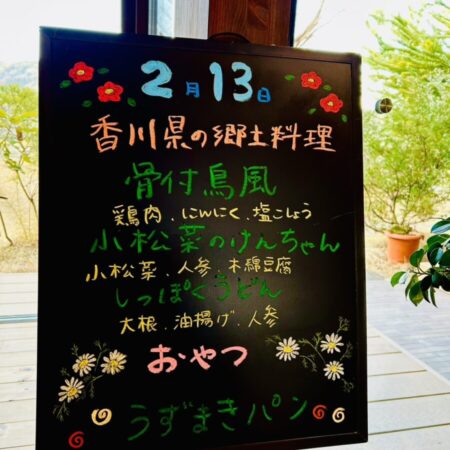 2月13日
香川県の郷土料理
骨付鳥風
鶏肉、にんにく、塩こしょう
小松菜のけんちゃん
小松菜、人参、木綿豆腐
しっぽくうどん
大根、油揚げ、人参
おやつ
うずまきパン